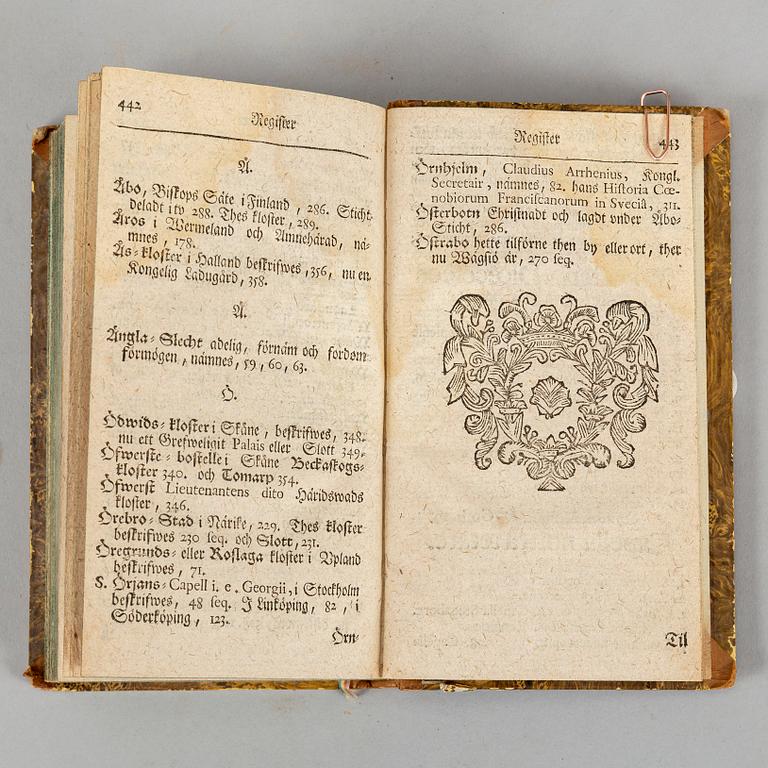 442
Register
Å.
Åbo, Biskops Säte i Finland, 286. Sticht
deladt i tw 288. Thes kloster, 289.
Åros i Wermeland och Amnehärad, nä-
mnes, 178.
Ås-kloster i Halland beskrifwes, 356, nu en
Kongelig Ladugård, 358.
Ä.
Ängla-Slecht adelig, förnäm och fordom
förmögen, nämnes, 59, 60, 63.
Ö.
Ödwids-kloster i Skåne, beskrifwes, 348.
nu ett Grefweligit Palais eller Slott 349.
Öfwerste-bostelle i Skåne Beckaskogs-
kloster 340. och Tomarp 354.
Öfwerst Lieutenantens dito Häridswads
kloster, 346.
Örebro-Stad i Närike, 229. Thes kloster
beskrifwes 230 seq. och Slott, 231.
Öregrunds- eller Roslaga kloster i Upland
beskrifwes, 71.
S. Örjans-Capell i. e. Georgii, i Stockholm
beskrifwes, 48 seq. J Linköping, 82, i
Söderköping, 123.
Örn-
Register
443
Örnhjelm, Claudius Arrhenius, Kongl.
Secretair, nämnes, 82. hans Historia Cœ-
nobiorum Franciscanorum in Svecia, 311.
Österbotn Christnadt och lagdt under Åbo-
Sticht, 286.
Östrabo hette tilförne then by eller ort, ther
nu Wägsiö är, 270 seq.
Til